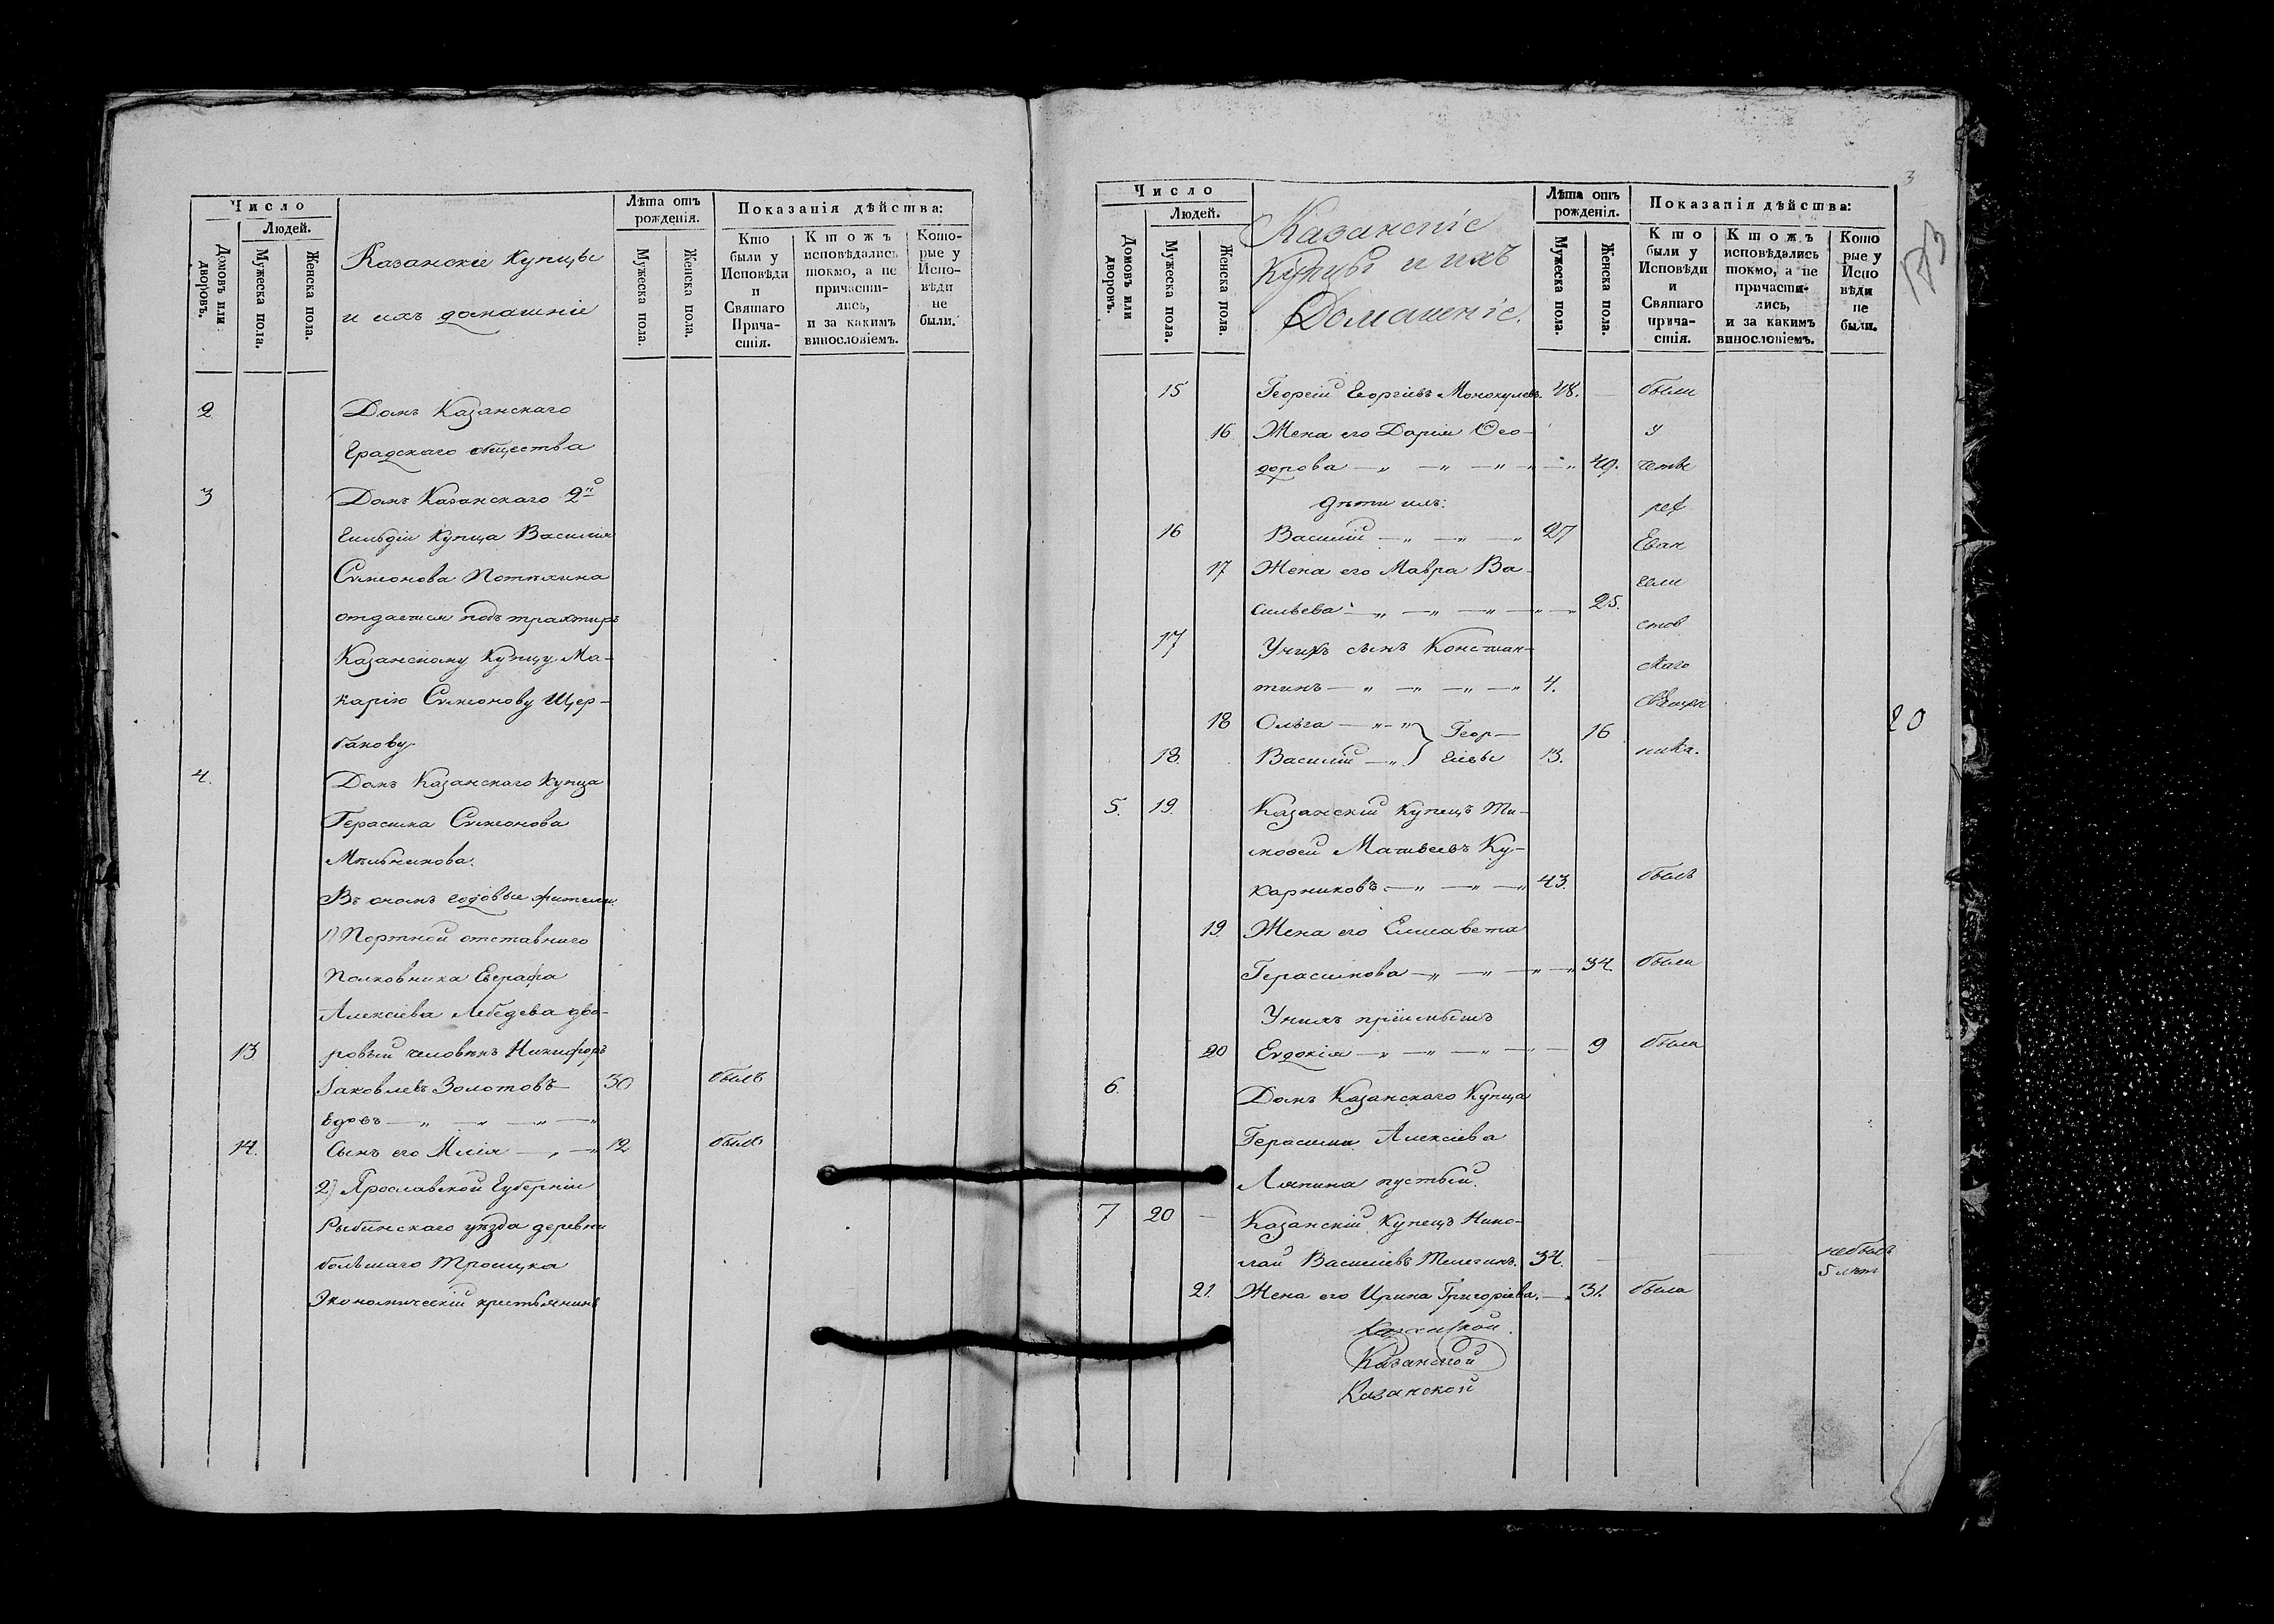 Число
Людей.
Домовъ или дворовъ.
Мужеска пола.
Женска пола.
Казанскіе Купцы
и ихъ домашніе
Лѣта отъ рожденія.
Мужеска пола.
Женска пола.
Показанія дѣйства:
Кто были у Исповѣди и Святаго Прича-стія.
Ктожъ исповѣдались токмо, а не причасти-лись, и за какимъ винословіемъ.
Кото-рые у Испо-вѣди не были.
2 Домъ Казанскаго
Градскаго общества
3 Домъ Казанскаго 2й
Гильдіи Купца Василія
Симіонова Потехина
отдается подъ трактиръ
Казанскому Купцу Ма-
карію Симіонову Щер-
бакову.
4. Домъ Казанскаго Купца
Герасима Симіонова
Мѣльникова.
Въ ономъ годовые жители.
1) Портной отставнаго
Полковника Евграфа
Алексіева Лебедева дво-
13 ровый человѣкъ Никифоръ
Іаковлевъ Золотовъ 30 былъ
вдовъ — „ — „ — „ — „
14. Сынъ его Илія — „ — „ 12 былъ
2) Ярославской Губерніи
Рыбинскаго уѣзда деревни
большаго Троицка
Экономическій крестьянинъ
3
Число
Людей.
Домовъ или дворовъ.
Мужеска пола.
Женска пола.
Казанскіе
Купцы и ихъ
Домашніе.
Лѣта отъ рожденія.
Мужеска пола.
Женска пола.
Показанія дѣйства:
Кто были у Исповѣди и Святаго прича-стія.
Ктожъ исповѣдались токмо, а не причасти-лись, и за какимъ винословіемъ.
Кото рые у Испо вѣди не были.
15 Георгій Георгіевъ 48. — были
16 Жена его Дарія Ѳео- у
дорова — „ — „ — „ — „ — „ 49. четы
Дѣти ихъ: рех
16 Василій — „ — „ — „ 27 Еван
17 Жена его Мавра Ва- гели
сильева — „ — „ — „ — „ — 25. стов
17 У нихъ сынъ Констан- скаго
тинъ — „ — „ — „ — „ 4. священ
18 Ольга — „ — „ } Геор- 16
18. Василій — „ } гіевы 13. ника.
20
5. 19. Казанскій Купецъ Ти-
моѳей Матвеевъ Ку-
карниковъ — „ — „ — „ 43. былъ
19. Жена его Елисавета
Герасимова — „ — „ — „ — „ 34. была
У нихъ пріімышъ
20 Евдокія — „ — „ — „ — „ — 9 была
6. Домъ Казанскаго Купца
Герасима Алексіева
Ляпина пустый.
7 20 — Казанскій Купецъ Нико-
лай Василіевъ Телегинъ. 34. небылъ
5 лѣтъ
21. Жена его Ирина Григоріева. — „ 31. была
Казанской.
Казанской
Казанской